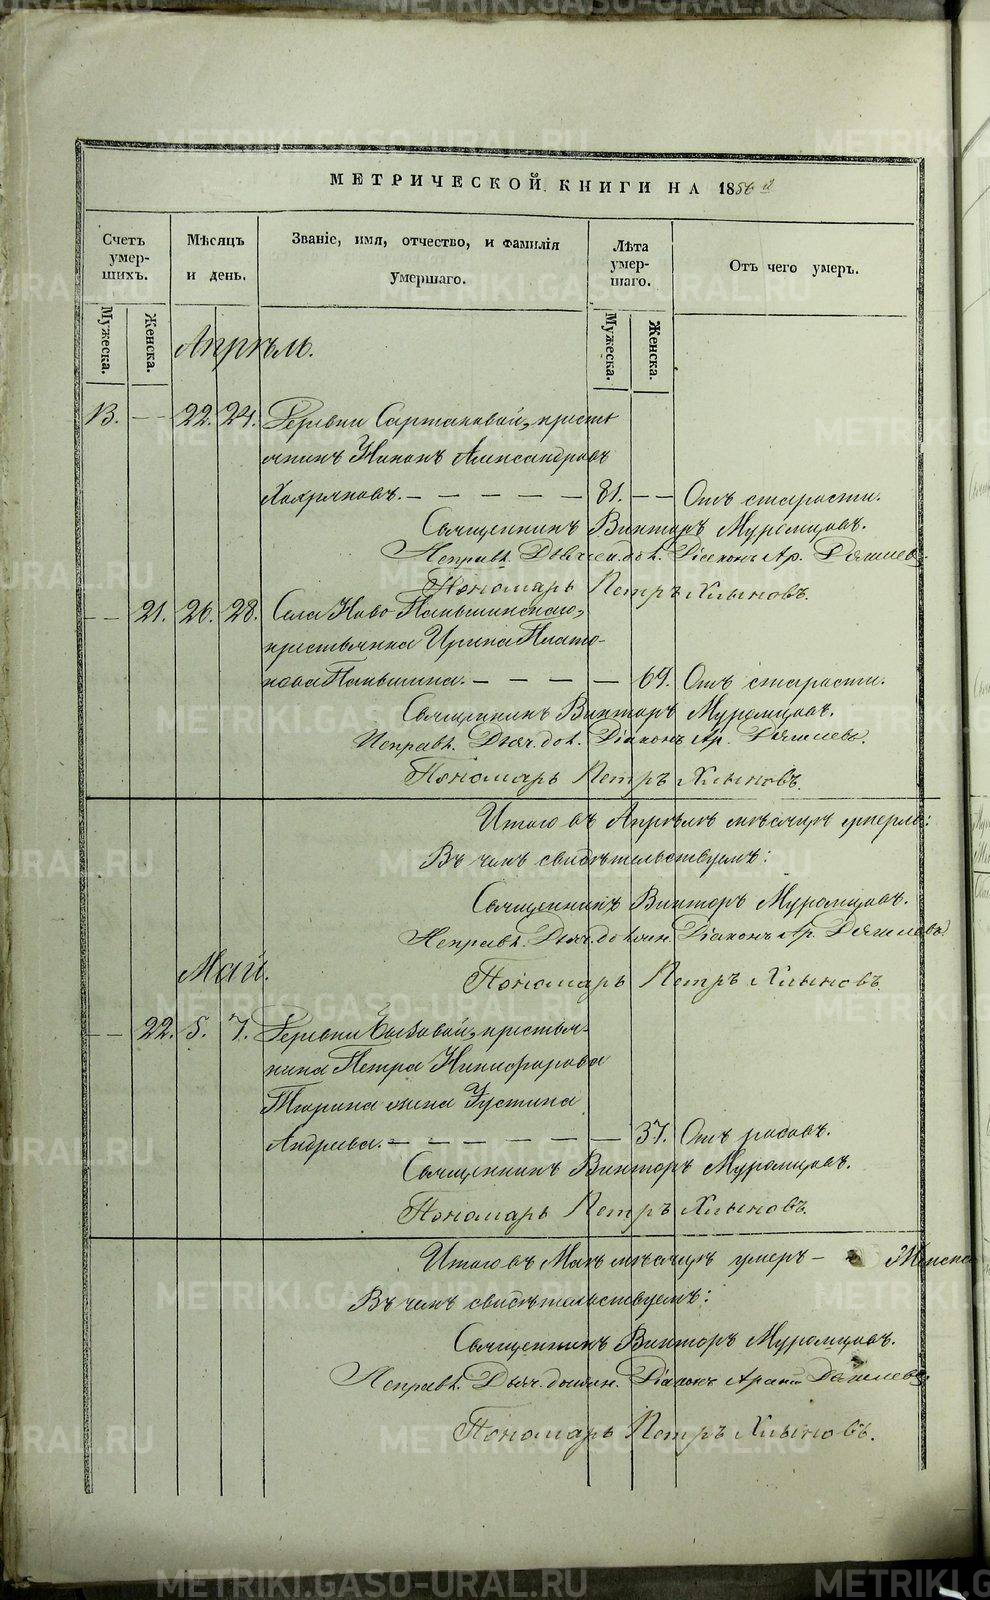 МЕТРИЧЕСКОЙ КНИГИ НА 1856 й
Счетъ умер- шихъ.
Мѣсяцъ и день.
Званіе, имя, отчество, и фамилія умершаго.
Лѣта умер- шаго.
Отъ чего умеръ.
Мужеска.
Женска.
Мужеска.
Женска.
Апрѣль.
13. — 22. 24. Деревни крестья
янинъ Никонъ Александровъ
Хохряковъ. — — — — — 81. — — Отъ старости.
Священникъ Викторъ Муромцовъ.
Исправл. Діаконъ Ар.
Пономарь Петръ Хлыновъ.
— — 21. 26. 28. Села Ново Паньшинскаго,
крестьянка Ирина Плато-
нова Паньшина. — — — — — 69. Отъ старости.
Священникъ Викторъ Муромцовъ.
Исправл. Дьяч. дол. Діаконъ Ар.
Пономарь Петръ Хлыновъ.
Итого въ Апрѣлѣ мѣсяцѣ умерло:
Въ чемъ свидѣтельствуемъ:
Священникъ Викторъ Муромцовъ.
Исправл. Дьяч. должн. Діаконъ Ар.
Май.
Пономарь Петръ Хлыновъ.
— — 22. 5. 7. Деревни крестья-
нина Петра Никифорова
Тюрина жена Устина
Андреева. — — — — — — 37. Отъ родовъ.
Священникъ Викторъ Муромцовъ.
Пономарь Петръ Хлыновъ.
Итого въ Маѣ мѣсяцѣ умеръ — Женска
Въ чемъ свидѣтельствуемъ:
Священникъ Викторъ Муромцовъ.
Исправл. Дьяч. должн. Діаконъ
Пономарь Петръ Хлыновъ.
METRIKI.GASO-URAL.RU